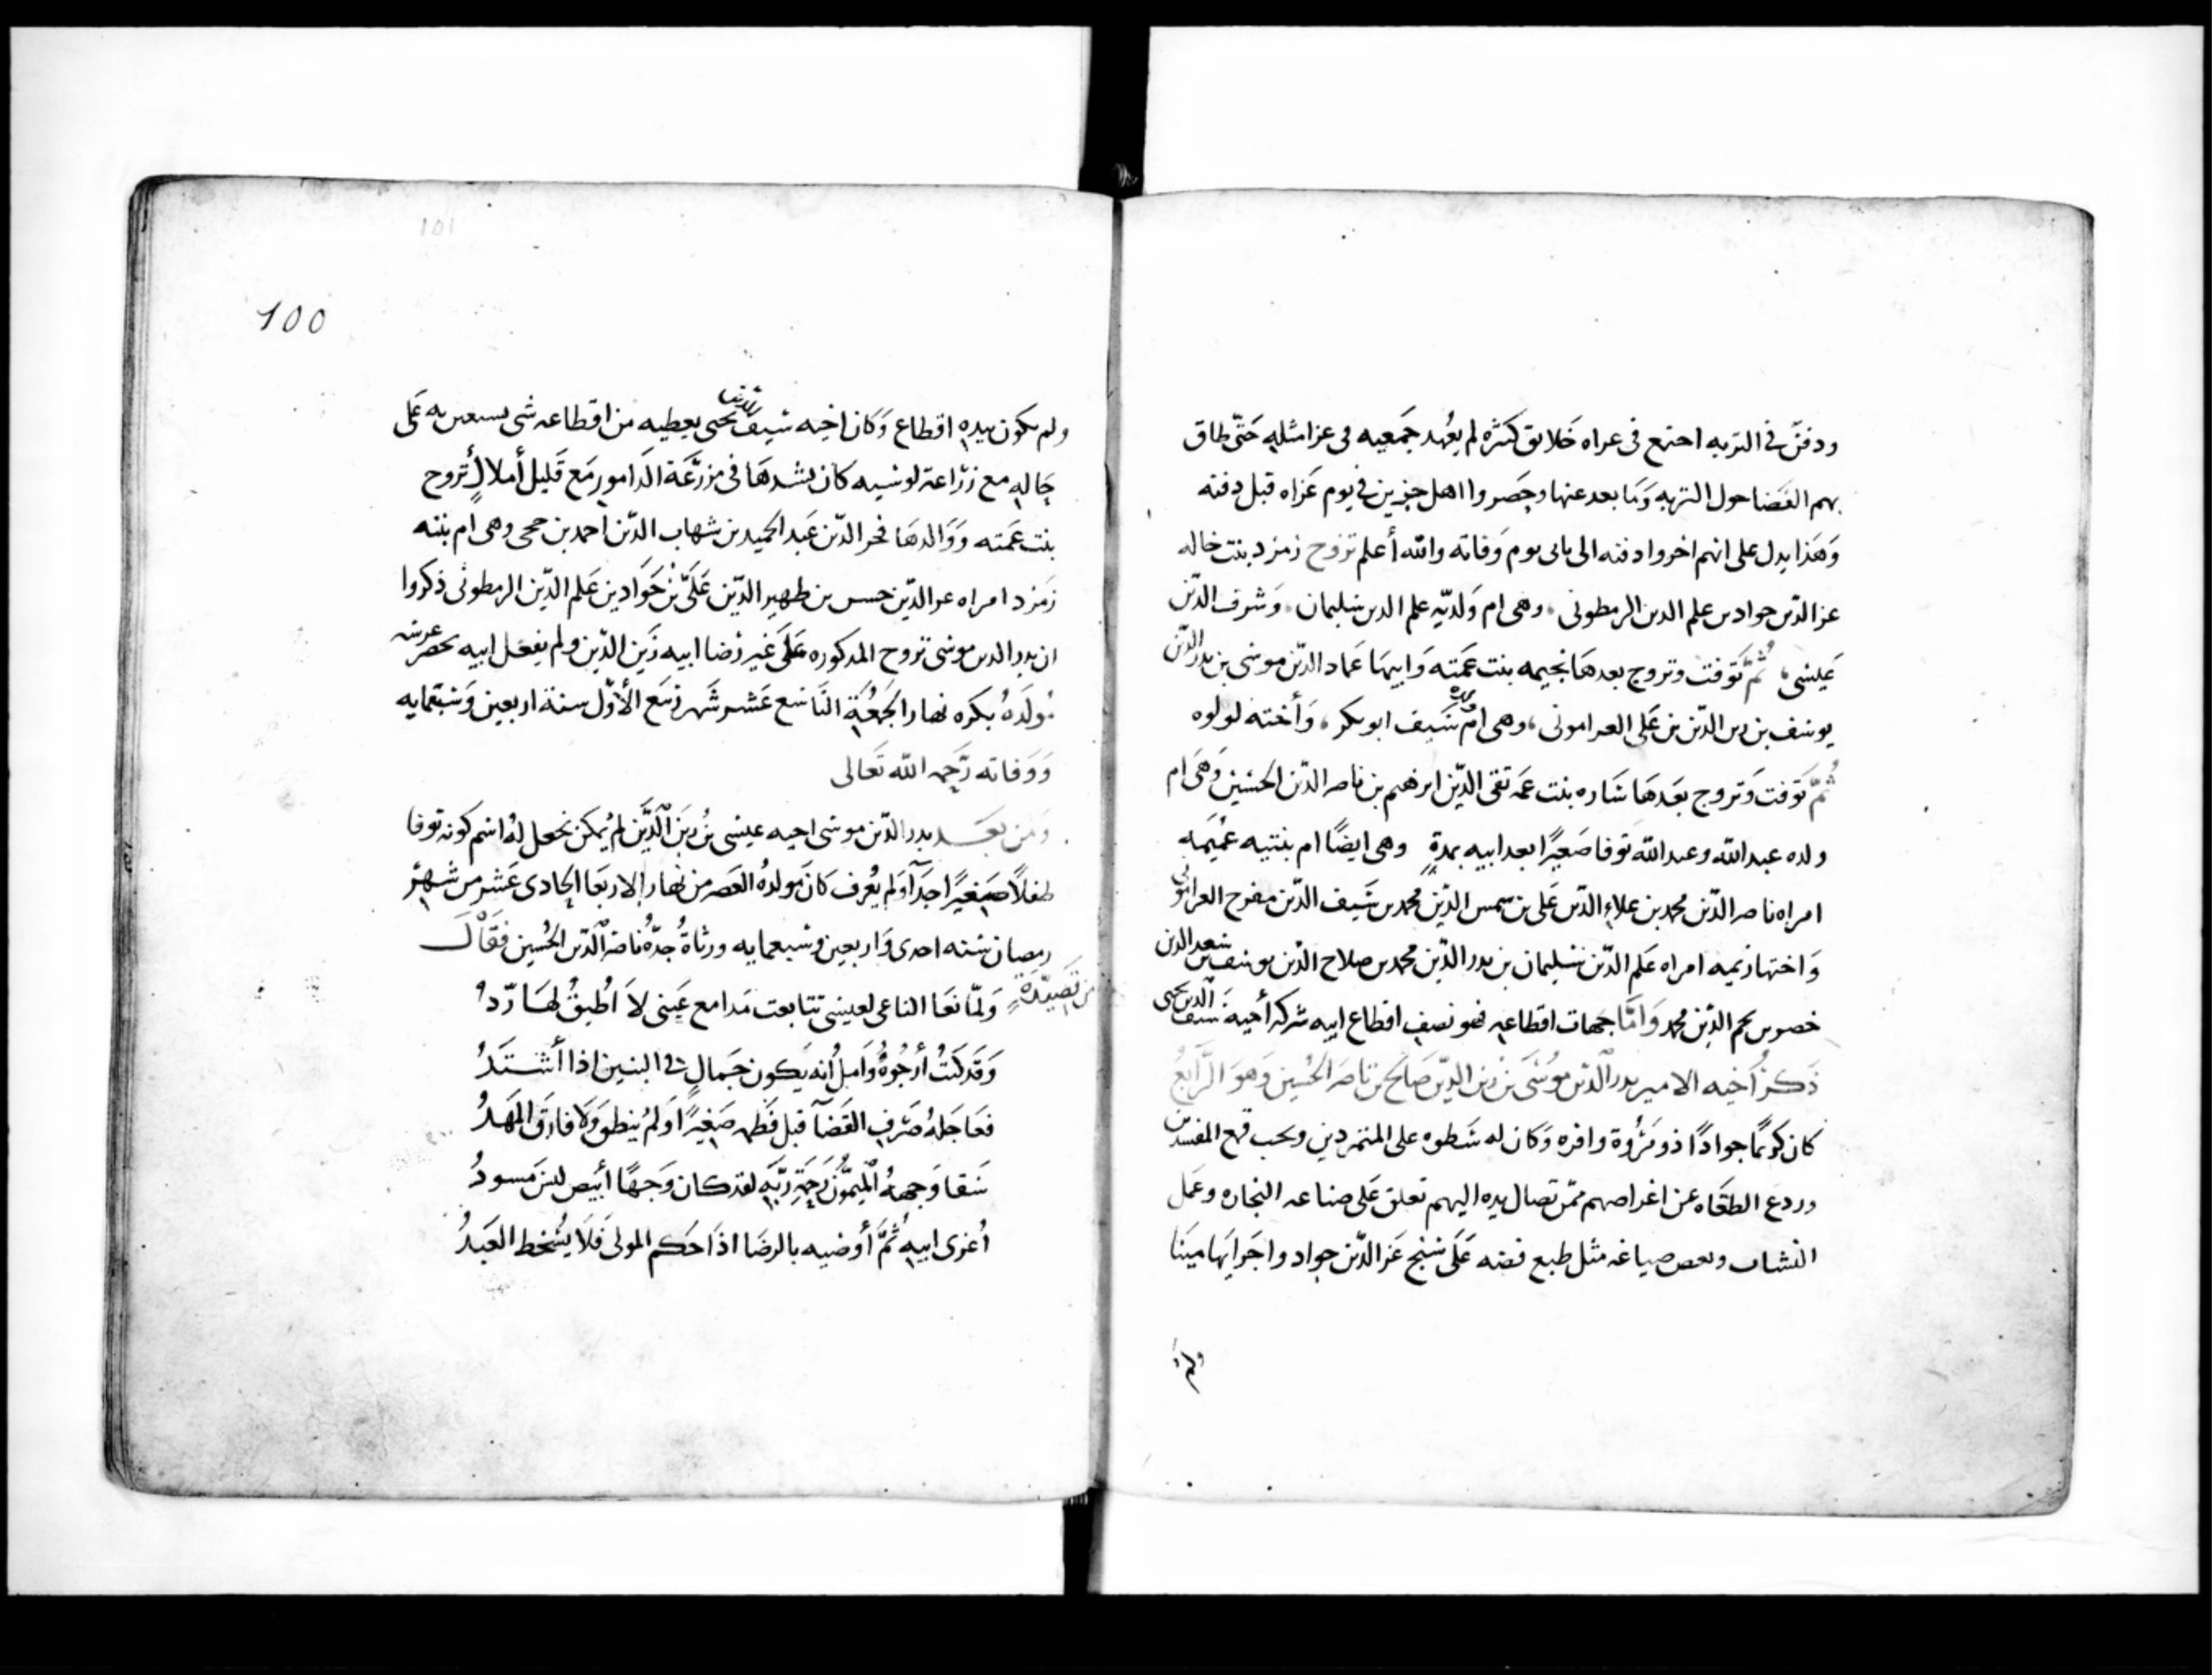 ودفن في التربه اجتمع في عزاه خلايق كثيره لم يعهد جمعيه في عزا مثله حتى طاق
بهم الفضا حول التربه وما بعد عنها وحصروا اهل جزين في يوم عزاه قبل دفنه
وهذا يدل على انهم اخروا دفنه الى ثاني يوم وفاته والله أعلم تزوج زمرد بنت خاله
عز الدين جواد بن علم الدين الرمطوني وهي ام ولديه علم الدين سليمان وشرف الدين
عيسى ثم توفت وتزوج بعدها نجيمه بنت عمته وابيها عماد الدين موسى بن بدر الدين
يوسف بن زين الدين بن علي العراموني وهي ام سيف ابو بكر وأخته لولوه
ثم توفت وتزوج بعدها ساره بنت عمه تقي الدين ابرهيم بن ناصر الدين الحسين وهي ام
ولده عبد الله وعبد الله توفا صغيرا بعد ابيه بمدة وهي ايضا ام بنتيه عميمه
امراه ناصر الدين محمد بن علاء الدين علي بن شمس الدين محمد بن سيف الدين مفرج العراموني
واختها زيميه امراه علم الدين سليمان بن بدر الدين محمد بن صلاح الدين يوسف بن سعد الدين
خضر بن نجم الدين محمد وامّا جهات اقطاعه فهو نصف اقطاع ابيه شركة أخيه سيف الدين يحيى
ذكر أخيه الامير بدر الدين موسى بن زين الدين صالح بن ناصر الحسين وهو الرابع
كان كريما جوادا ذو مروة وافره وكان له سطوه على المتمردين ويحب قمع المفسدين
وردع الطغاه عن اغراضهم ممن تصال يده اليهم تعلق على صناعه النجاره وعمل
النشاب وبعض صياغه مثل طبع فضه على عز الدين جواد
ولم
100
101
ولم يكون بيده اقطاع وكان اخيه سيف الدين يحيى يعطيه من اقطاعه شي يستعين به على
حاله مع زراعة لوسيه كان يشدها في مزرعة الدامور مع قليل أملاك تزوج
بنت عمته ووالدها فخر الدين عبد الحميد بن شهاب الدين احمد بن حجي وهي ام بنته
زمرد امراه عز الدين حسن بن ظهير الدين علي بن جواد بن علم الدين الرمطوني ذكروا
ان بدر الدين موسى تزوج المذكوره على غير رضا ابيه زين الدين ولم يفعل ابيه يحضر عرسه
مولده بكره نهار الجمعة التاسع عشر شهر ربيع الأول سنة اربعين وسبعمايه
ووفاته رحمه الله تعالى
ومن بعد بدر الدين موسى اخيه عيسى بن زين الدين لم يمكن نجعل له اسم كونه توفا
طفلا صغيرا جدا ولم يعرف كان مولده العصر من نهار الاربعا الحادي عشر من شهر
رمضان سنه احدى واربعين وسبعمايه ورثاه جده ناصر الدين الحسين فقال
من قصيدة ولمّا نعا الناعي لعيسى تتابعت مدامع عيني لا اطيق لها ردّ
وقد كنت أرجوه وامل أنه يكون جمال في البنين اذا أشتد
فعاجله صرف القضآ قبل فطمه صغيرا ولم ينطق ولا فارق المهد
سقا وجهه الميمون رحمة ربه لقد كان وجها أبيض ليس مسود
أعزي ابيه ثم أوصيه بالرضا اذا حكم المولى فلا يسخط العبد